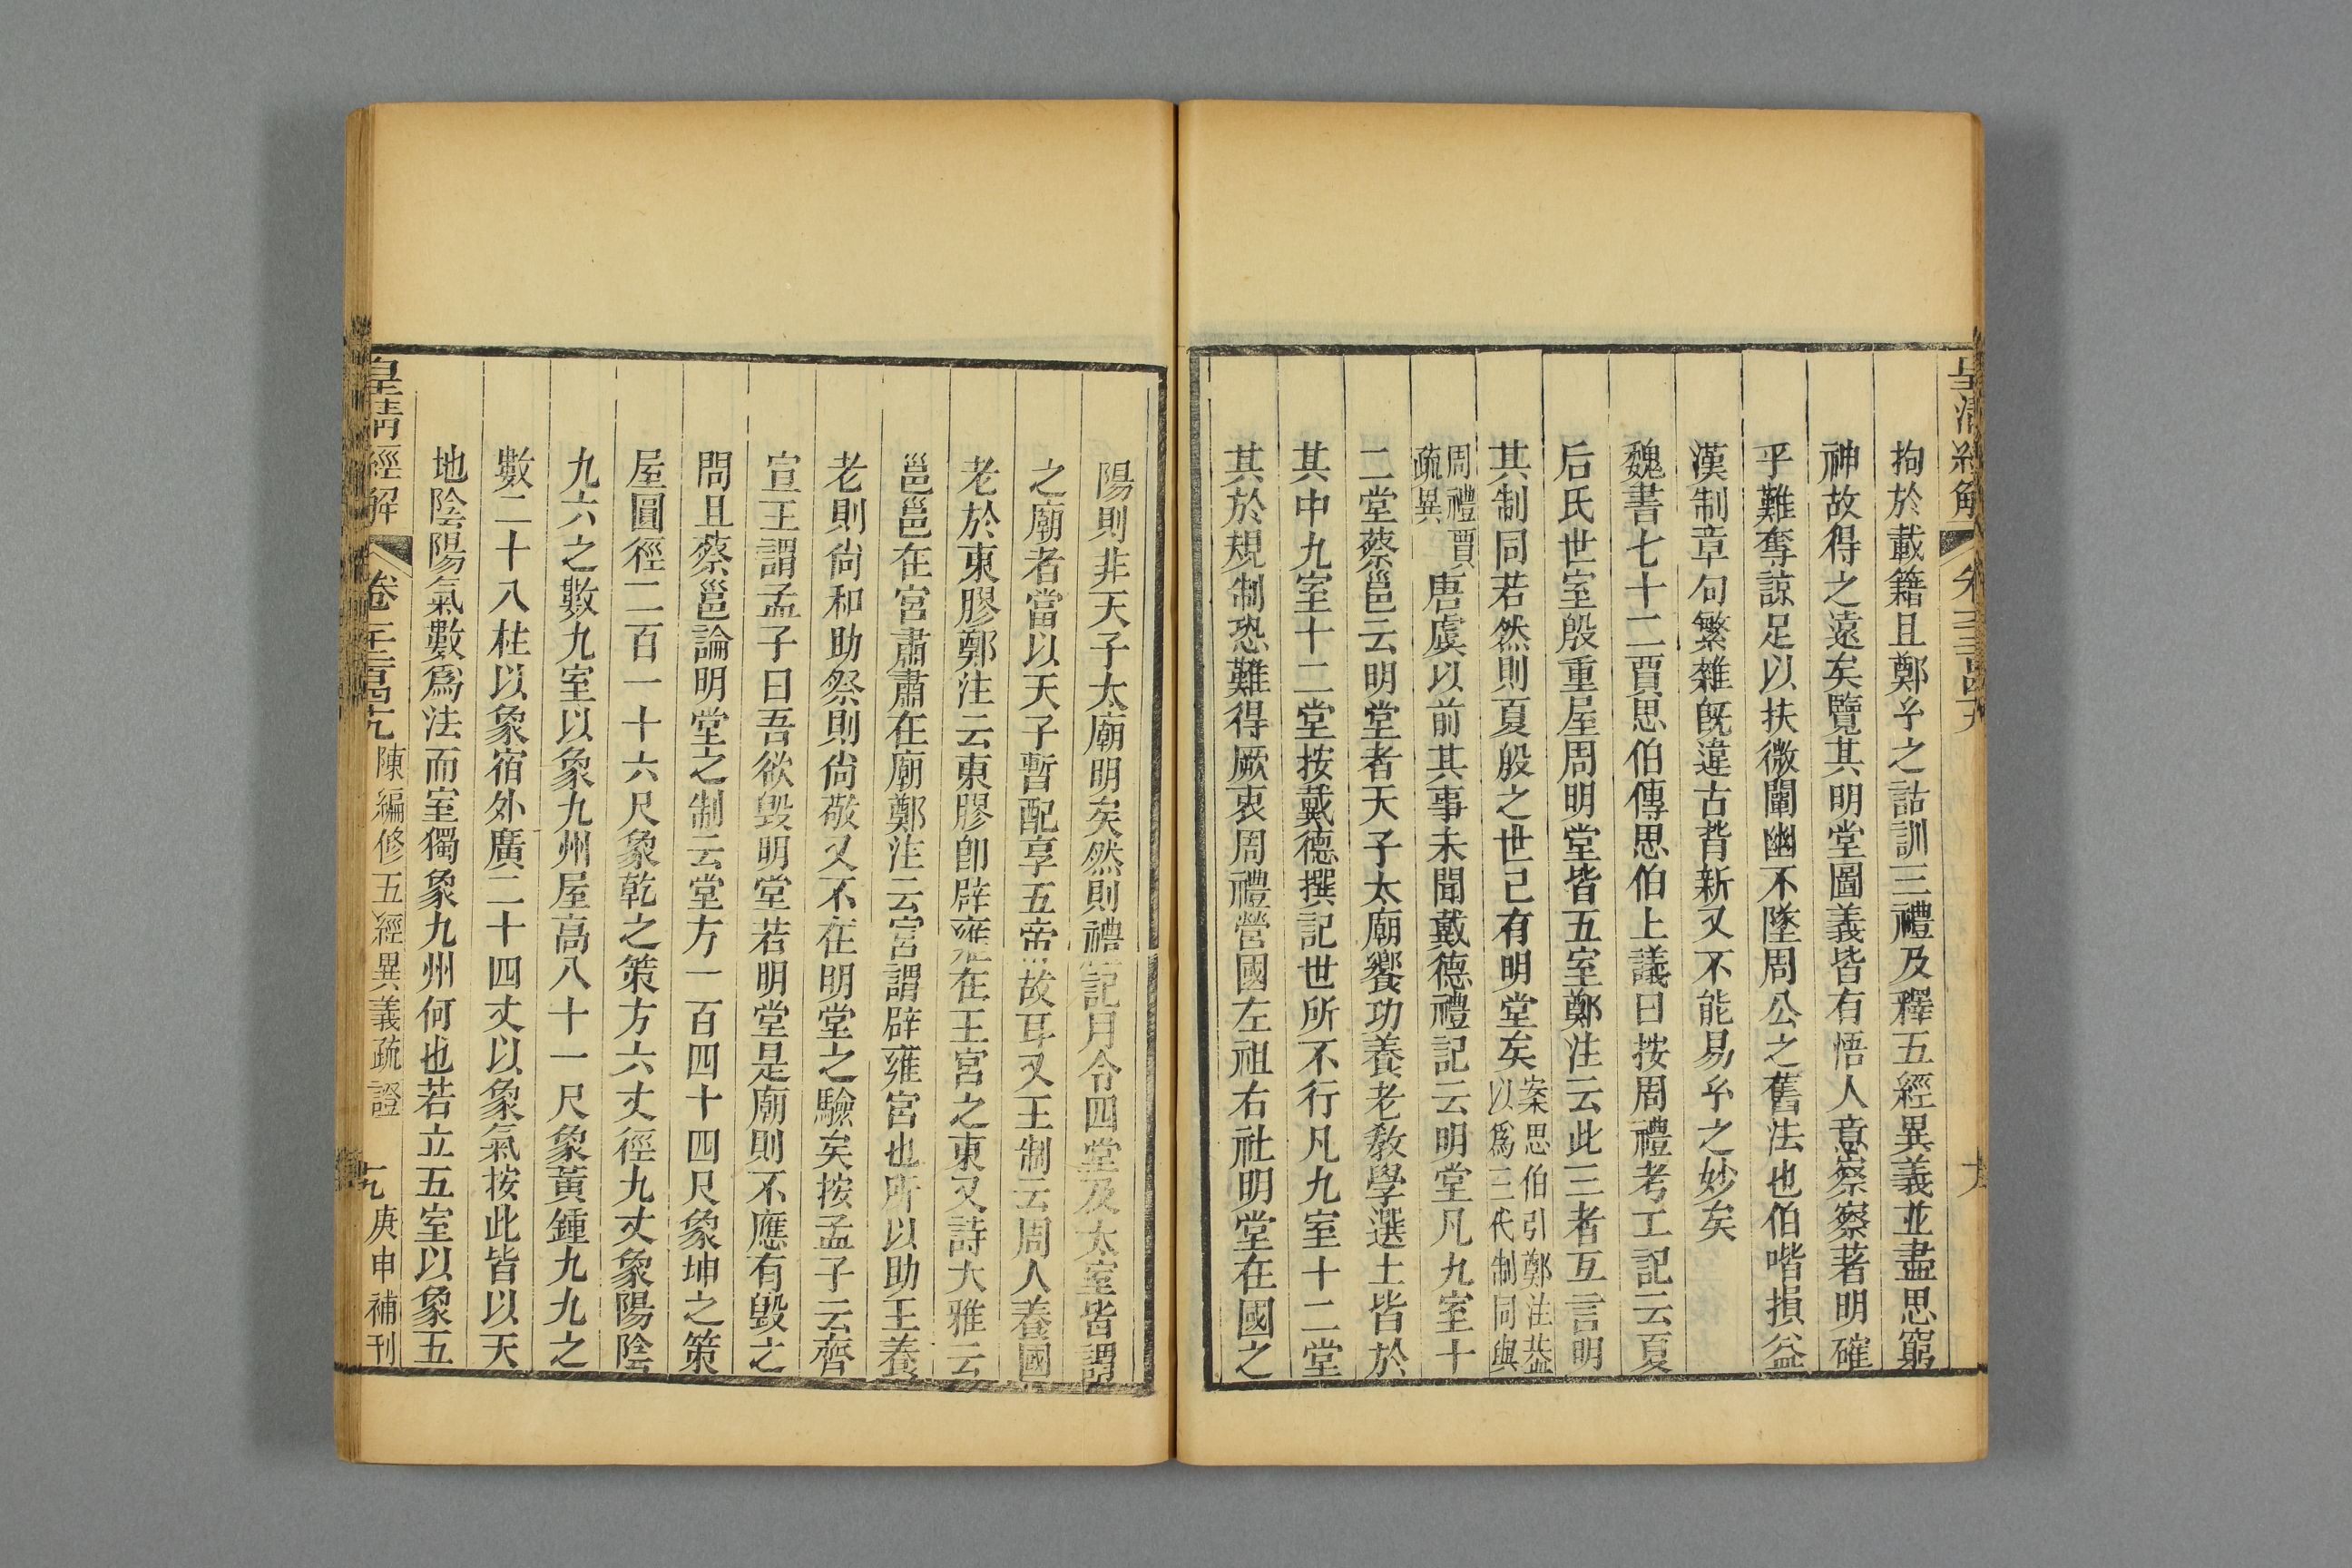 皇清經解
拘於載籍且鄭𤣥之詁訓三禮及釋五經異義並盡思窮
神故得之遠矣覽其明堂圖義皆有悟人意察察著明確
乎難奪諒足以扶微闡幽不墜周公之舊法也伯喈損益
漢制章句繁雜旣違古背新又不能易𤣥之妙矣
魏書七十二賈思伯傳思伯上議曰按周禮考工記云夏
后氏世室殷重屋周明堂皆五室鄭注云此三者互言明
其制同若然則夏殷之世已有明堂矣案思伯引鄭注葢以爲三代制同與
周禮賈疏異唐虞以前其事未聞戴德禮記云明堂凡九室十
二堂蔡邕云明堂者天子太廟饗功養老教學選士皆於
其中九室十二堂按戴德撰記世所不行凡九室十二堂
其於規制恐難得厥衷周禮營國左祖右社明堂在國之
陽則非天子太廟明矣然則禮記月令四堂及太室皆謂
之廟者當以天子暫配享五帝故耳又王制云周人養國
老於東膠鄭注云東膠卽辟雍在王宮之東又詩大雅云
邕邕在宮肅肅在廟鄭注云宮謂辟雍宮也所以助王養
老則尙和助祭則尙敬又不在明堂之驗矣按孟子云齊
宣王謂孟子曰吾欲毁明堂若明堂是廟則不應有毁之
問且蔡邕論明堂之制云堂方一百四十四尺象坤之策
屋圓徑二百一十六尺象乾之策方六丈徑九丈象陽陰
九六之數九室以象九州屋高八十一尺象黃鍾九九之
數二十八柱以象宿外廣二十四丈以象氣按此皆以天
地陰陽氣數爲法而室獨象九州何也若立五室以象五
皇清經解 卷一千二百四九 陳編修五經異義疏證 十九 庚申補刊